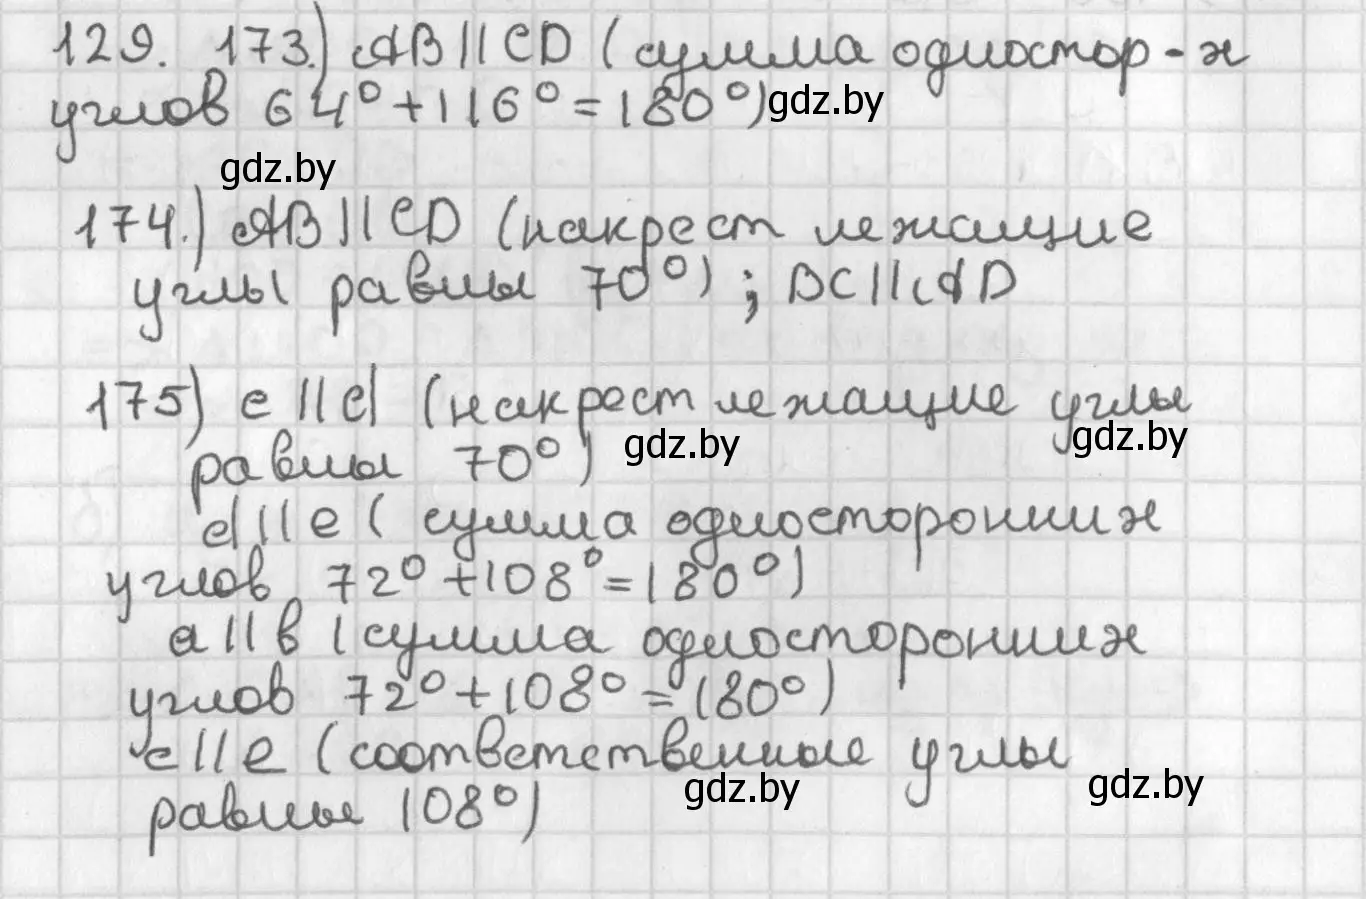 129. 173.) AB || CD (сумма одностор-х
углов 64° + 116° = 180°) gdz.by
gdz.by
174.) AB || CD (накрест лежащие
углы равны 70°) ; BC || AD
175) c || d (накрест лежащие углы
равны 70°) gdz.by gdz.by
d || e ( сумма односторонних
углов 72° + 108° = 180°)
a || b (сумма односторонних
углов 72° + 108° = 180°)
c || e (соответственные углы
равны 108°) gdz.by gdz.by